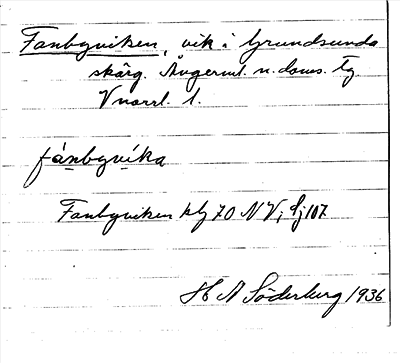 Fanbyviken, vik i Grundsunda
skärg. Ångerml. n. doms. tg
V norrl. l.
fánbyvíka
Fanbyviken kbl 70 NV; Sj 107
H A Söderberg 1936